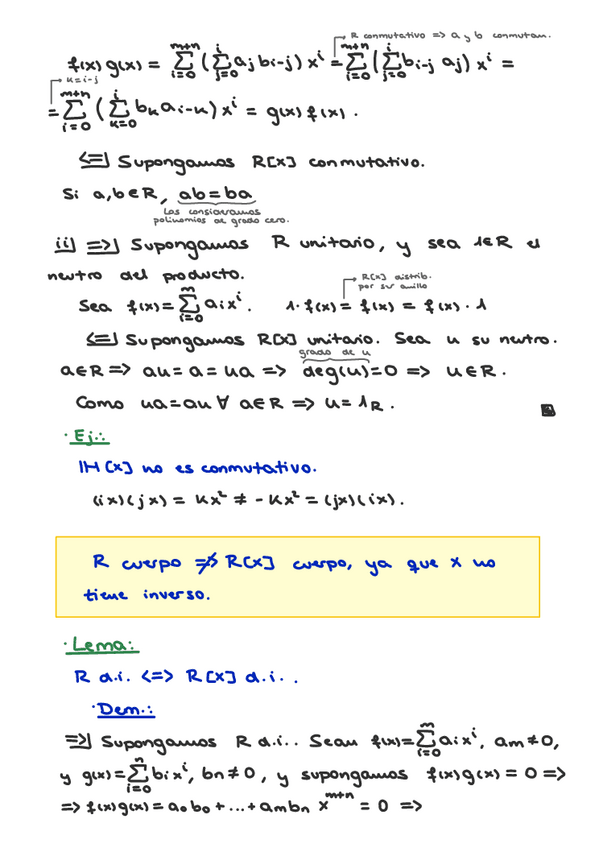 R conmutativo => a y b conmutan.
f(x)g(x) = ∑_{i=0}^{m+n} (∑_{j=0}^{i} a_j b_{i-j}) x^i = ∑_{i=0}^{m+n} (∑_{j=0}^{i} b_{i-j} a_j) x^i =
k=i-j
= ∑_{i=0}^{m+n} (∑_{k=0}^{i} b_k a_{i-k}) x^i = g(x) f(x).
<=| Supongamos R[x] conmutativo.
Si a,b∈R, ab=ba
Las consideramos
polinomios de grado cero.
ii) =>| Supongamos R unitario, y sea 1∈R el
neutro del producto.
R[x] distrib.
por ser anillo
Sea f(x)=∑_{i=0}^{m} a_i x^i. 1·f(x) = f(x) = f(x)·1
<=| Supongamos R[x] unitario. Sea u su neutro.
grado de u
a∈R => au=a=ua => deg(u)=0 => u∈R.
Como ua=au ∀ a∈R => u=1_R.
·Ej.:
IH[x] no es conmutativo.
(ix)(jx) = kx² ≠ -kx² = (jx)(ix).
R cuerpo ≠> R[x] cuerpo, ya que x no
tiene inverso.
·Lema:
R d.i. <=> R[x] d.i..
·Dem.:
=>| Supongamos R d.i.. Sean f(x)=∑_{i=0}^{m} a_i x^i, a_m≠0,
y g(x)=∑_{i=0}^{n} b_i x^i, b_n≠0, y supongamos f(x)g(x)=0 =>
=> f(x)g(x)=a_0 b_0+...+a_m b_n x^{m+n} = 0 =>